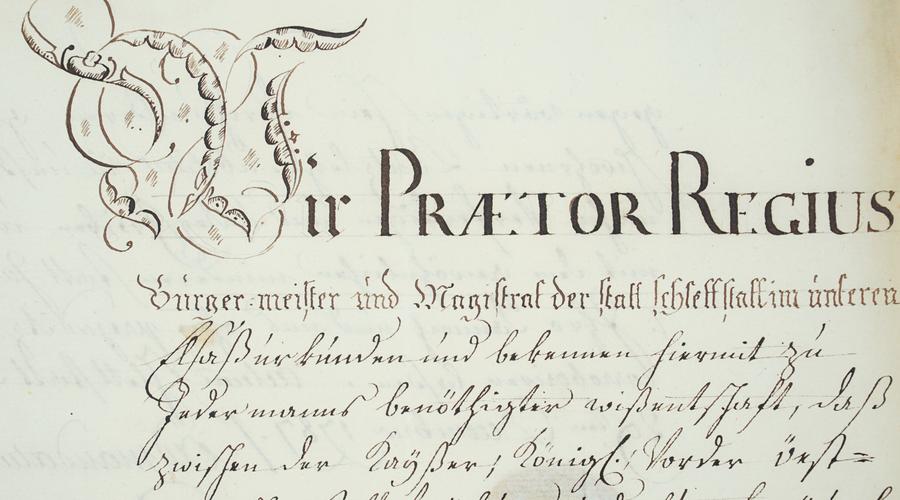 Wir PRÆTOR REGIUS
Bürger-meister und Magistrat der statt schlettstatt im unteren
Elsaß urkunden und bekennen hiermit zu
Jedermanns benöthigter wißentschaft, daß
zwischen der Kayßer; Königl: Vorder öest=